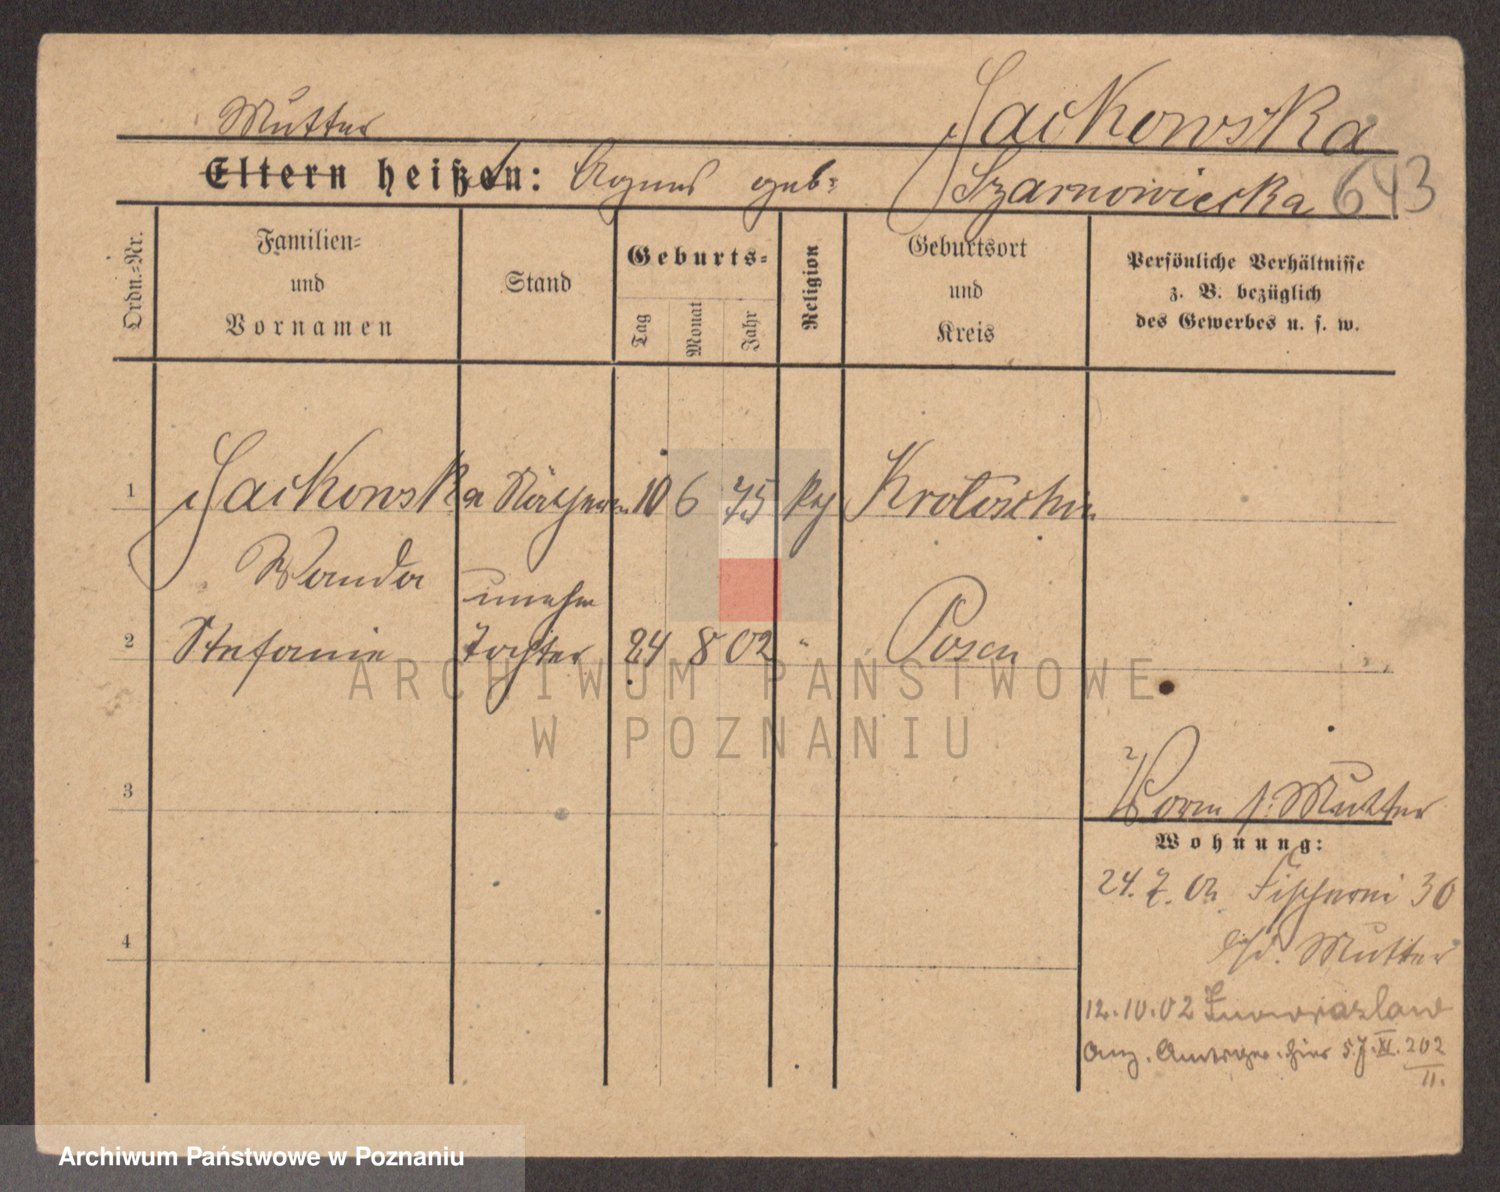 Mutter
Jackowska
Eltern heißen: Agnes geb:
Szarnowiecka 643
Ordn.=Nr.
Familien=
und
Vornamen
Stand
Geburts=
Tag
Monat
Jahr
Religion
Geburtsort
und
Kreis
Persönliche Verhältnisse
z. B. bezüglich
des Gewerbes u. s. w.
1 Jackowska Näherin 10 6 75 Krotoschin
Wanda
unehe
2 Stefanie Tochter 24 8 02 " Posen
ARCHIWUM PAŃSTWOWE
W POZNANIU
3
Mutter
Wohnung:
24. 7. 02 Fischerei 30
4
Mutter
12.10.02 Inowrazlaw
hier
202
11.
Archiwum Państwowe w Poznaniu